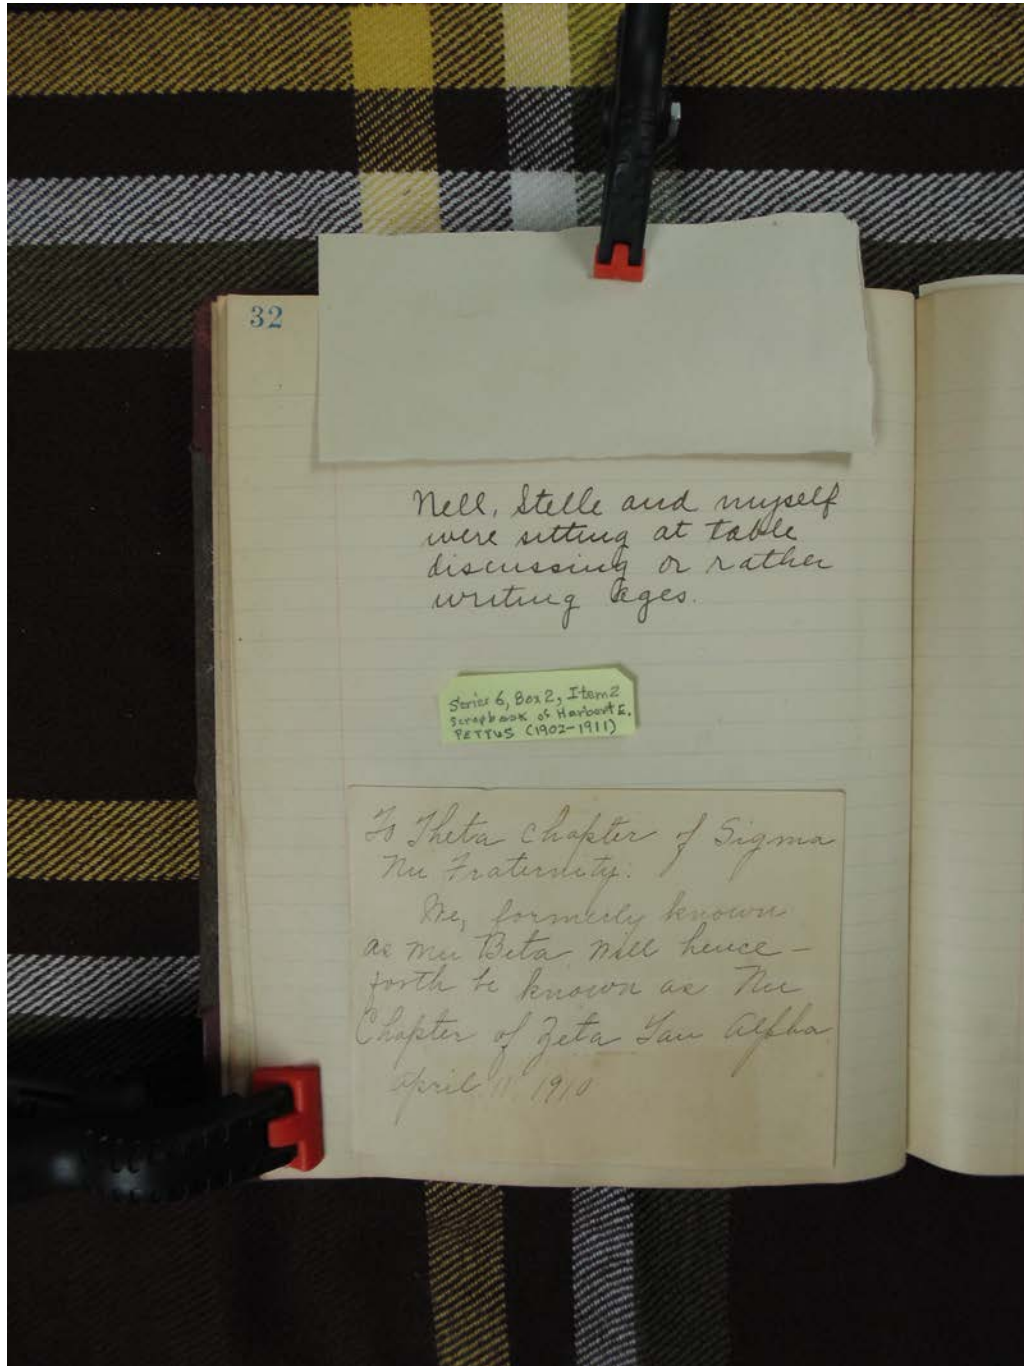 32
Nell, Stelle and myself
were sitting at table
discussing or rather
writing ages.
Series 6, Box 2, Item 2
Scrapbook of Harbort E.
PETTUS (1902-1911)
To Theta Chapter of Sigma
Nu Fraternity:
We, formerly known
as Mu Beta will hence-
forth be known as Nu
Chapter of Zeta Tau Alpha
April 11 1910